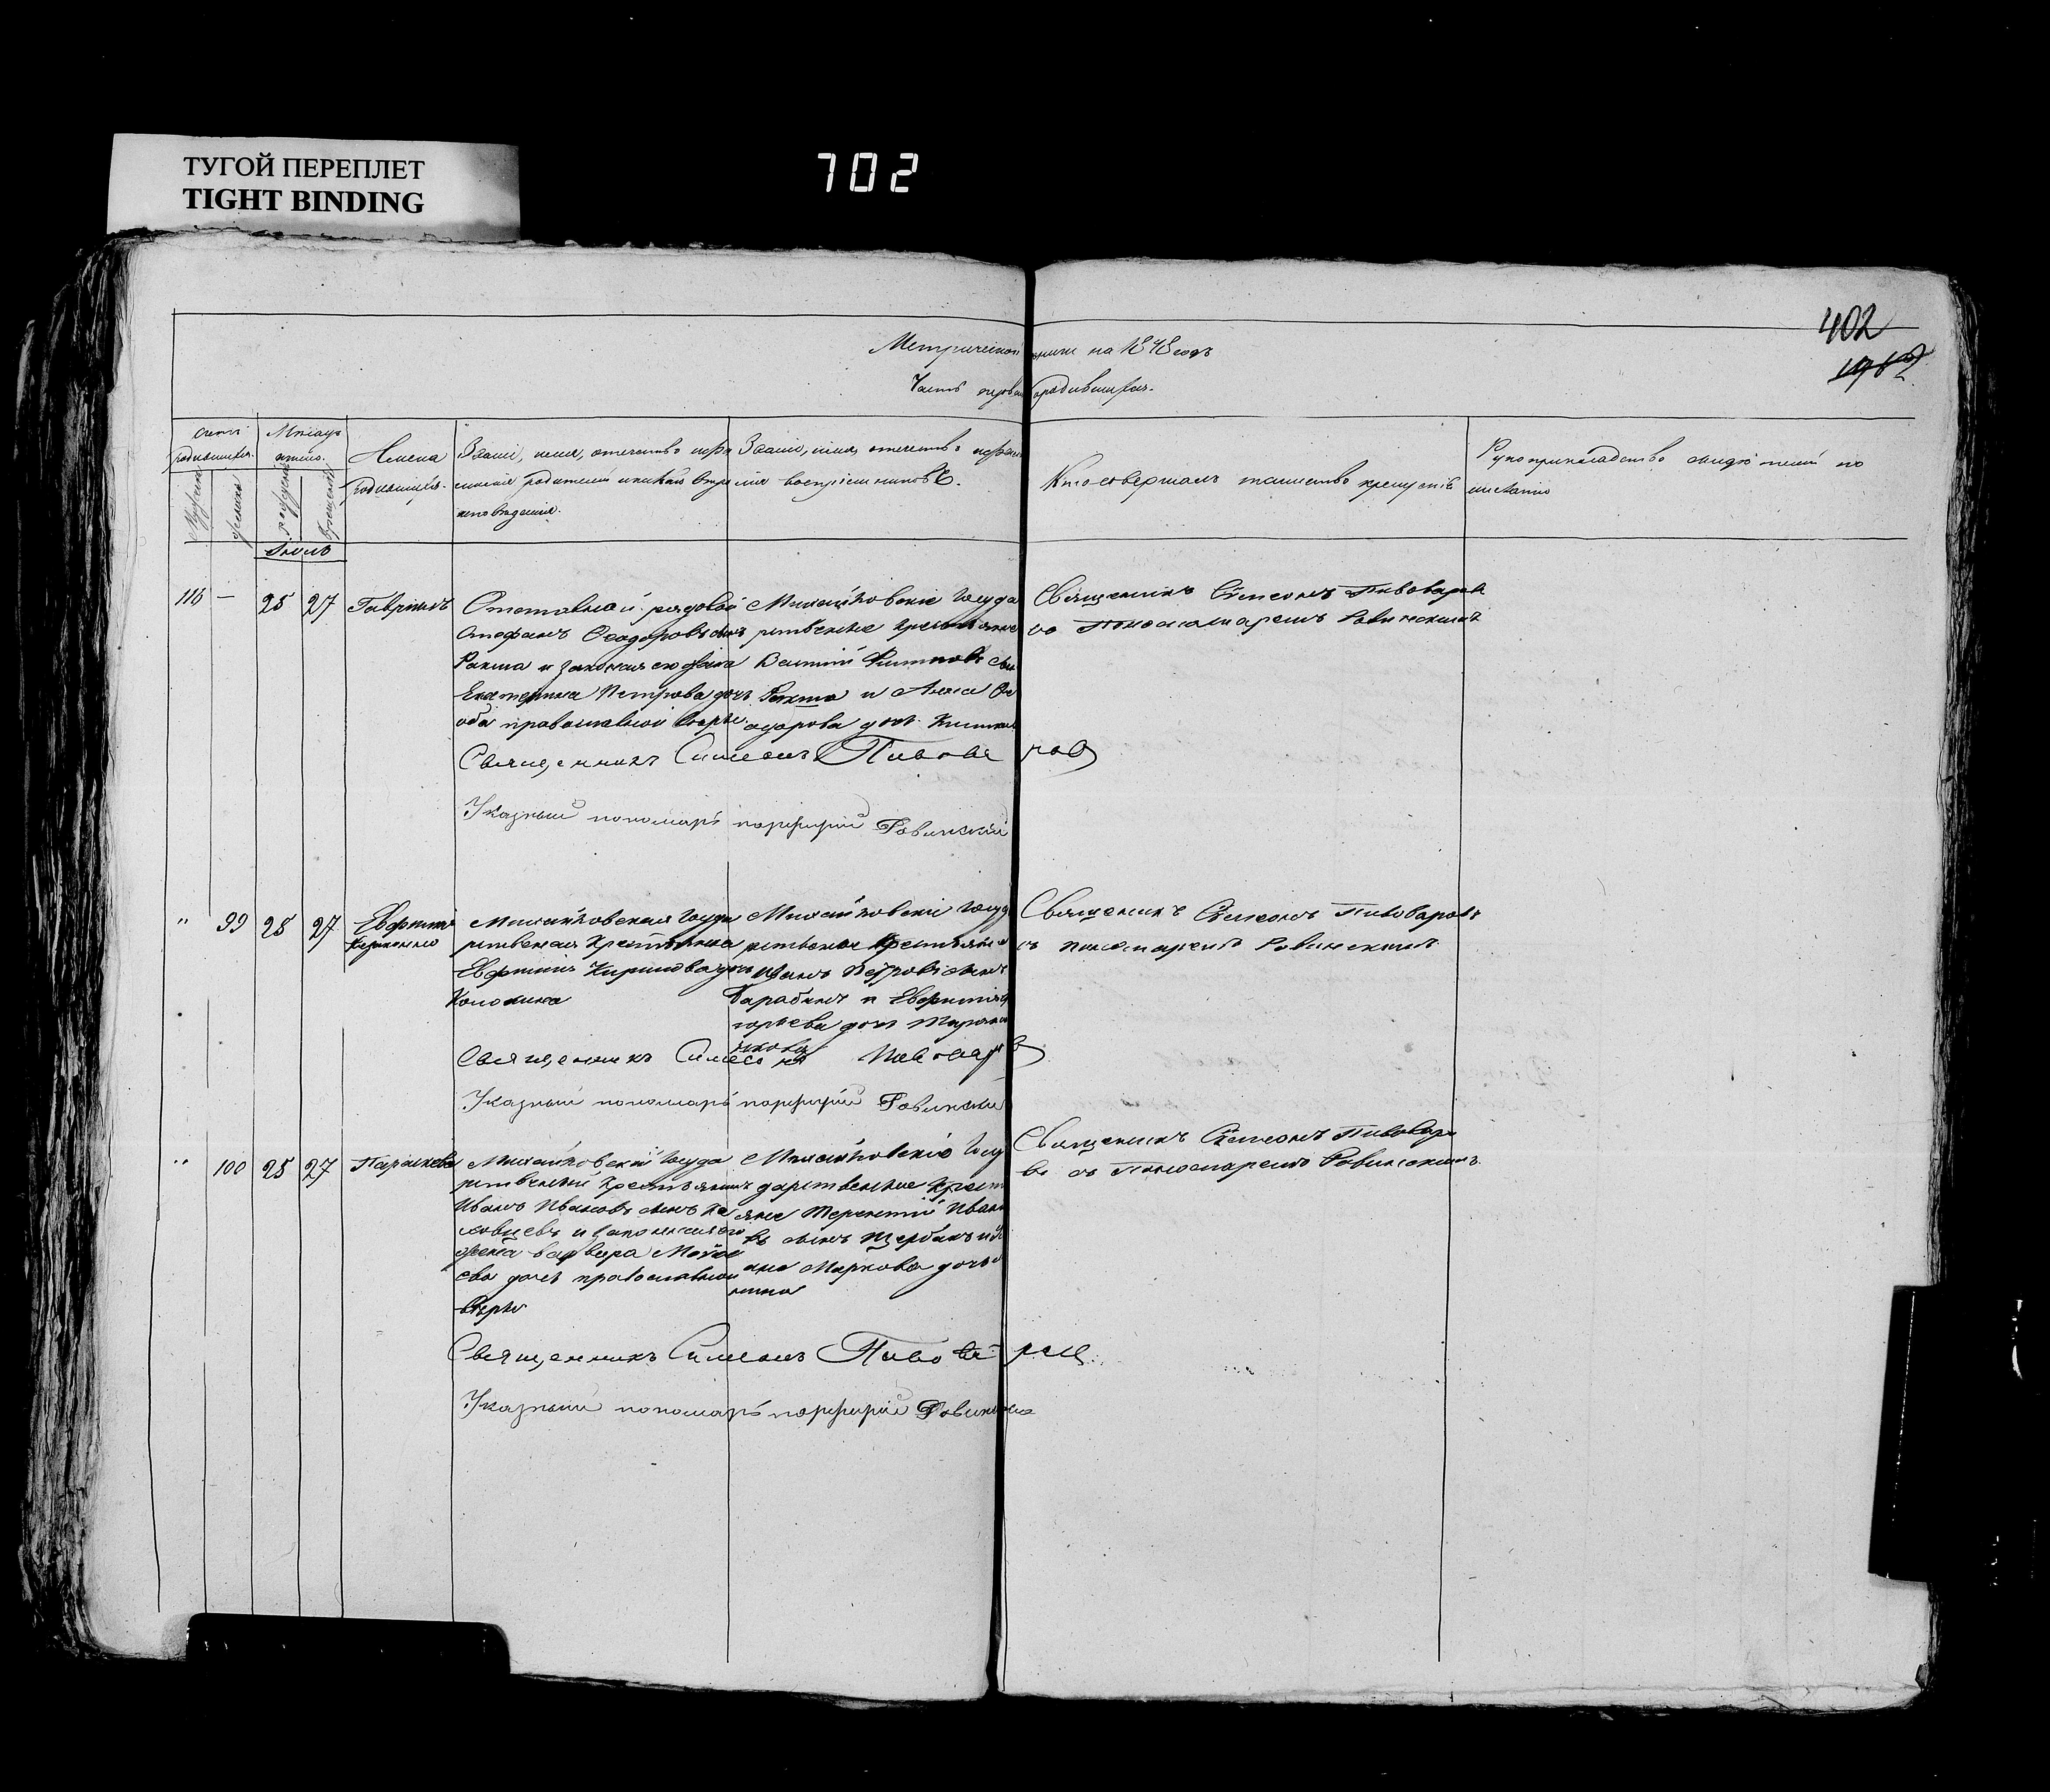 ТУГОЙ ПЕРЕПЛЕТ
TIGHT BINDING
702
402
Метрической книги на 1848 годъ
Часть первая о родившихся.
Счетъ родившихся.
Мужеска
женска
Мѣсяцъ и число.
рожденія
крещенія
Имена родившихся.
Званіе, имя, отечество и фамилія родителей и какой вѣроисповѣданія.
Званіе, имя, отечество и фамилія воспріемниковъ.
Кто совершалъ таинство крещенія
Рукоприкладство свидѣтелей по желанію
Іюль
116
—
25
27
Гавріилъ
Отставной рядовой
Стефанъ Ѳеодоровъ сынъ
Ракша и законная его жена
Екатерина Петрова дочь
оба православной вѣры.
Михайловскіе Госуда
рственные крестьяне
Василій Филиповъ сы
Ракша и Анна Ѳе
одорова дочь
Священникъ Симеонъ Пивоваровъ
съ Пономаремъ Ровинскимъ
Священникъ Симеонъ Пивоваровъ
Указный пономарь порфирій Ровинскій
"
99
25
27
Евфимія
незаконно
Михайловская Госуда
рственная Крестьянка
Евфимія Кирилова дочь
Михайловскіе Госуд
рственные Крестьяне
Иванъ Петровъ сынъ
Барабашъ и Евфимія
Священникъ Симеонъ Пивоваровъ
съ пономаремъ Ровинскимъ
Священникъ Симеонъ Пивоваровъ
Указный пономарь порфирій Ровинскій
"
100
25
27
Параскева
Михайловскій Госуда
рственный Крестьянинъ
Иванъ Ивановъ сынъ
и законная его
жена Варвара Мойсе
ева дочь православной
вѣры
Михайловскіе Госу
дарственные Крест
яне Терентій Ивано
въ сынъ Щербакъ и
Маркова дочь
Священникъ Симеонъ Пивоваро
въ съ Пономаремъ Ровинскимъ.
Священникъ Симеонъ Пивоваровъ
Указный пономарь порфирій Ровинскій